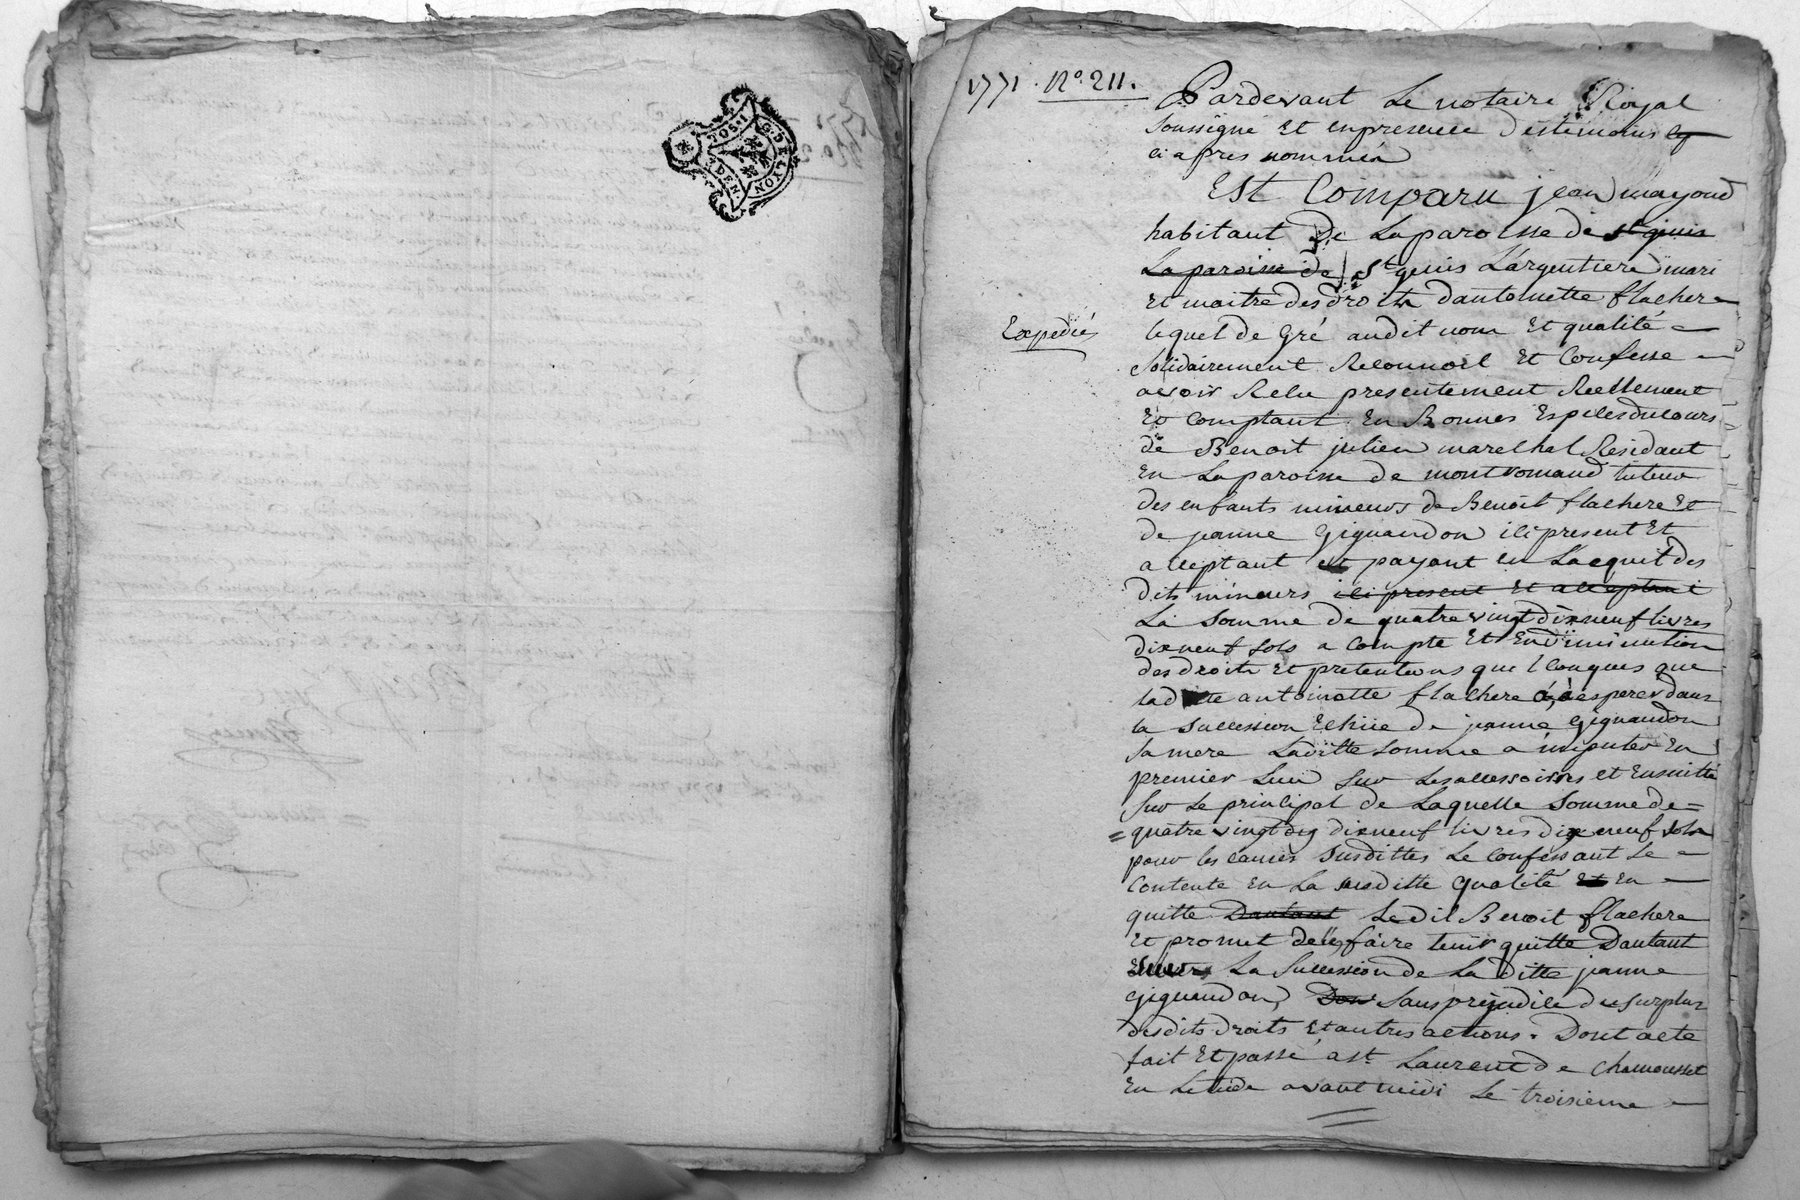 G. DE LYON
1 SO
DEN.
1771. No. 211.
Pardevant Le notaire Royal
soussigné Et enpresence destemoins
ci apres nommés
Est Comparu jean mayoud
habitant De La paroisse de st genis
La paroisse de St genis L'argentiere mari
et maitre des droits dantoinette flachere
Expediés
lequel de Gré audit nom Et qualité
solidairement Reconnoit Et Confesse
avoir Recu presentement Reellement
Et Comptant En Bonnes Especes du cours
de Benoit julien marechal Residant
En La paroisse de montromand tuteur
des enfants mineurs de Benoit flachere Et
de jeanne Gignaudon ici present Et
acceptant et payant en L'acquit des
dits mineurs ici present Et acceptant
La somme de quatre vingt dixneuf livres
dixneuf sols a compte Et En diminution
des droits Et pretentions quelconques que
ladite antoinette flachere a à esperer dans
la succession Echüe de jeanne Gignaudon
sa mere Laditte somme a imputer En
premier lieu sur Les accessoires et Ensuitte
sur Le principal de Laquelle somme de
quatre vingt dix dixneuf livres dix neuf sols
pour les causes susdittes Le confessant Se
Contente En La susditte qualité Et En
quitte Dautant Ledit Benoit flachere
Et promet de les faire tenir quitte Dautant
Envers La Succession de La ditte jeanne
Gignaudon, Sans préjudice du surplus
desdits droits Et autres actions. Dont acte
fait Et passé a st Laurent de Chamousset
En Letude avant midi Le troisieme